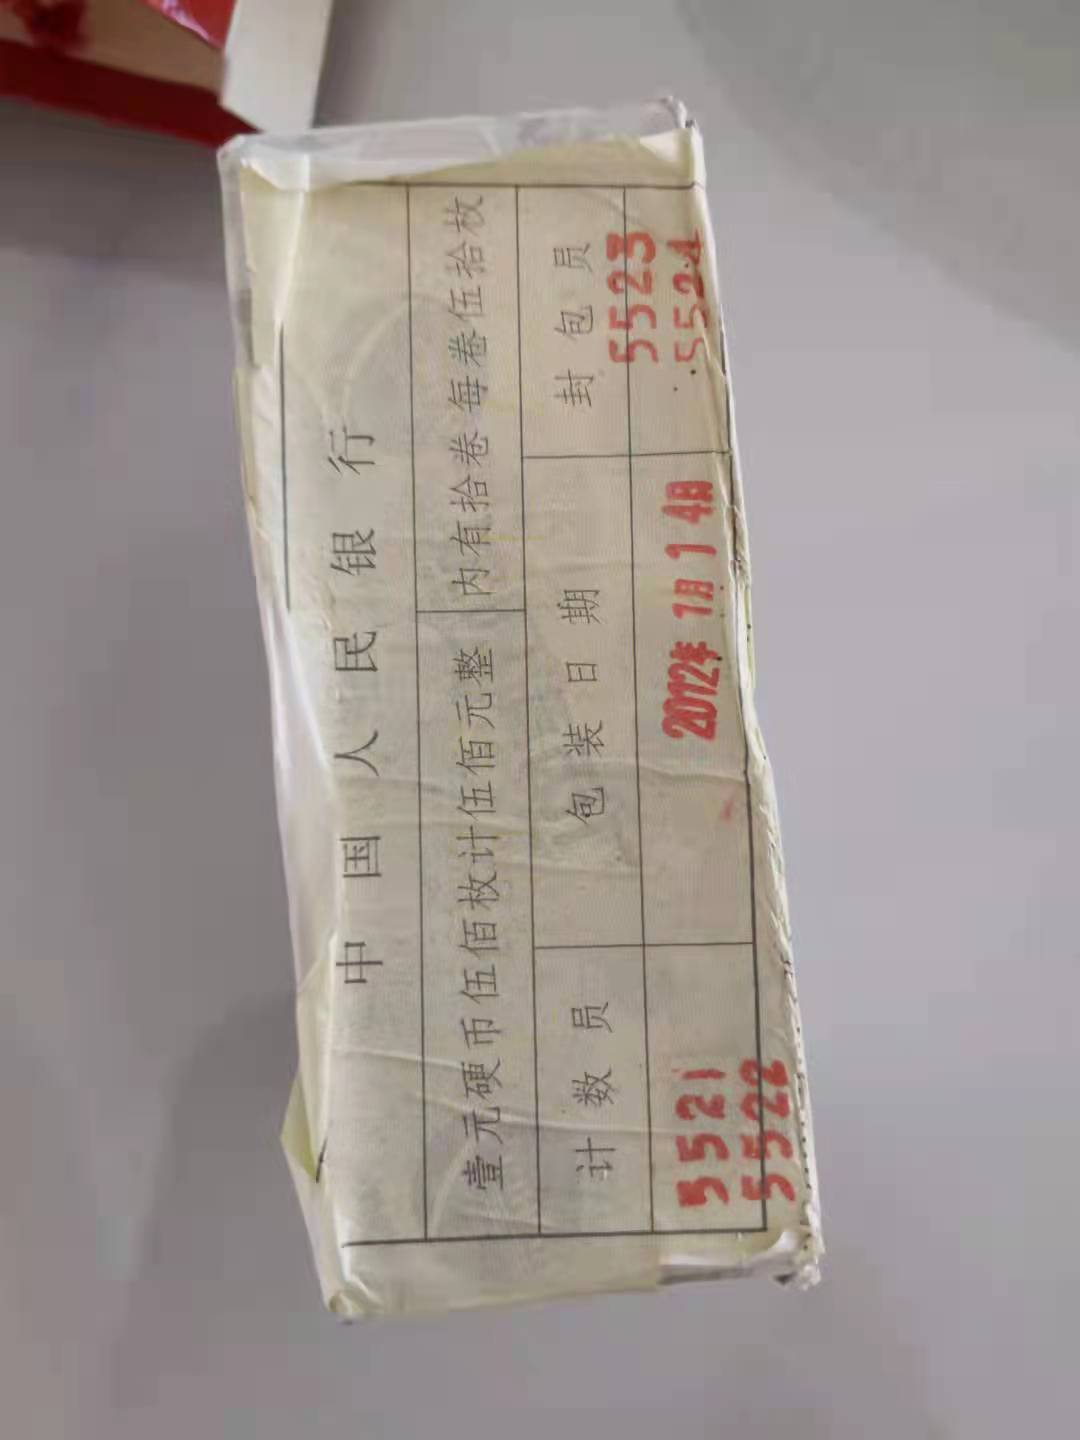 中国人民银行
壹元硬币伍佰枚计伍佰元整 内有拾卷每卷伍拾枚
计数员 包装日期 封包员
5521 2012年1月14日 5523
5522 5524